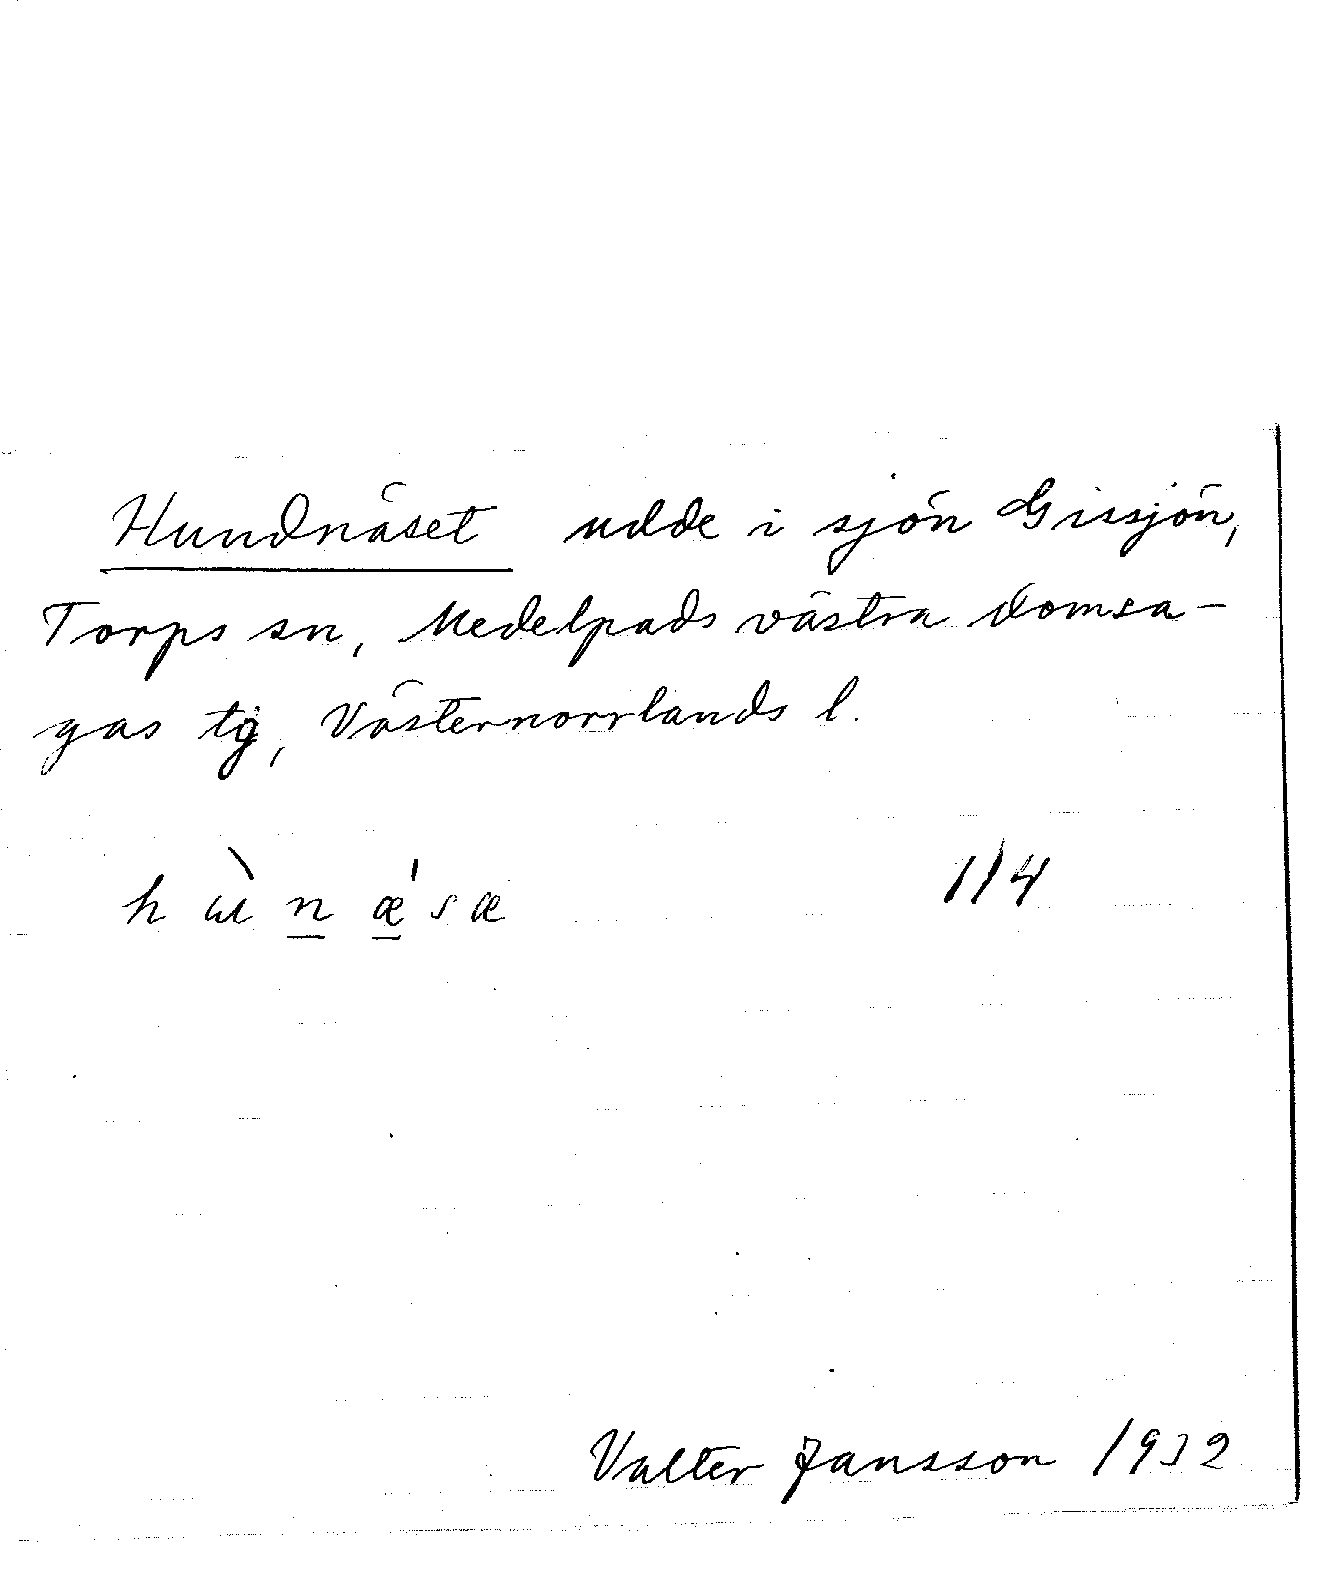 Hundnäset udde i sjön Gissjön,
Torps sn, Medelpads västra domsa-
gas tg, Västernorrlands l.
hɯ̀næ'sæ 114
Valter Jansson 1932